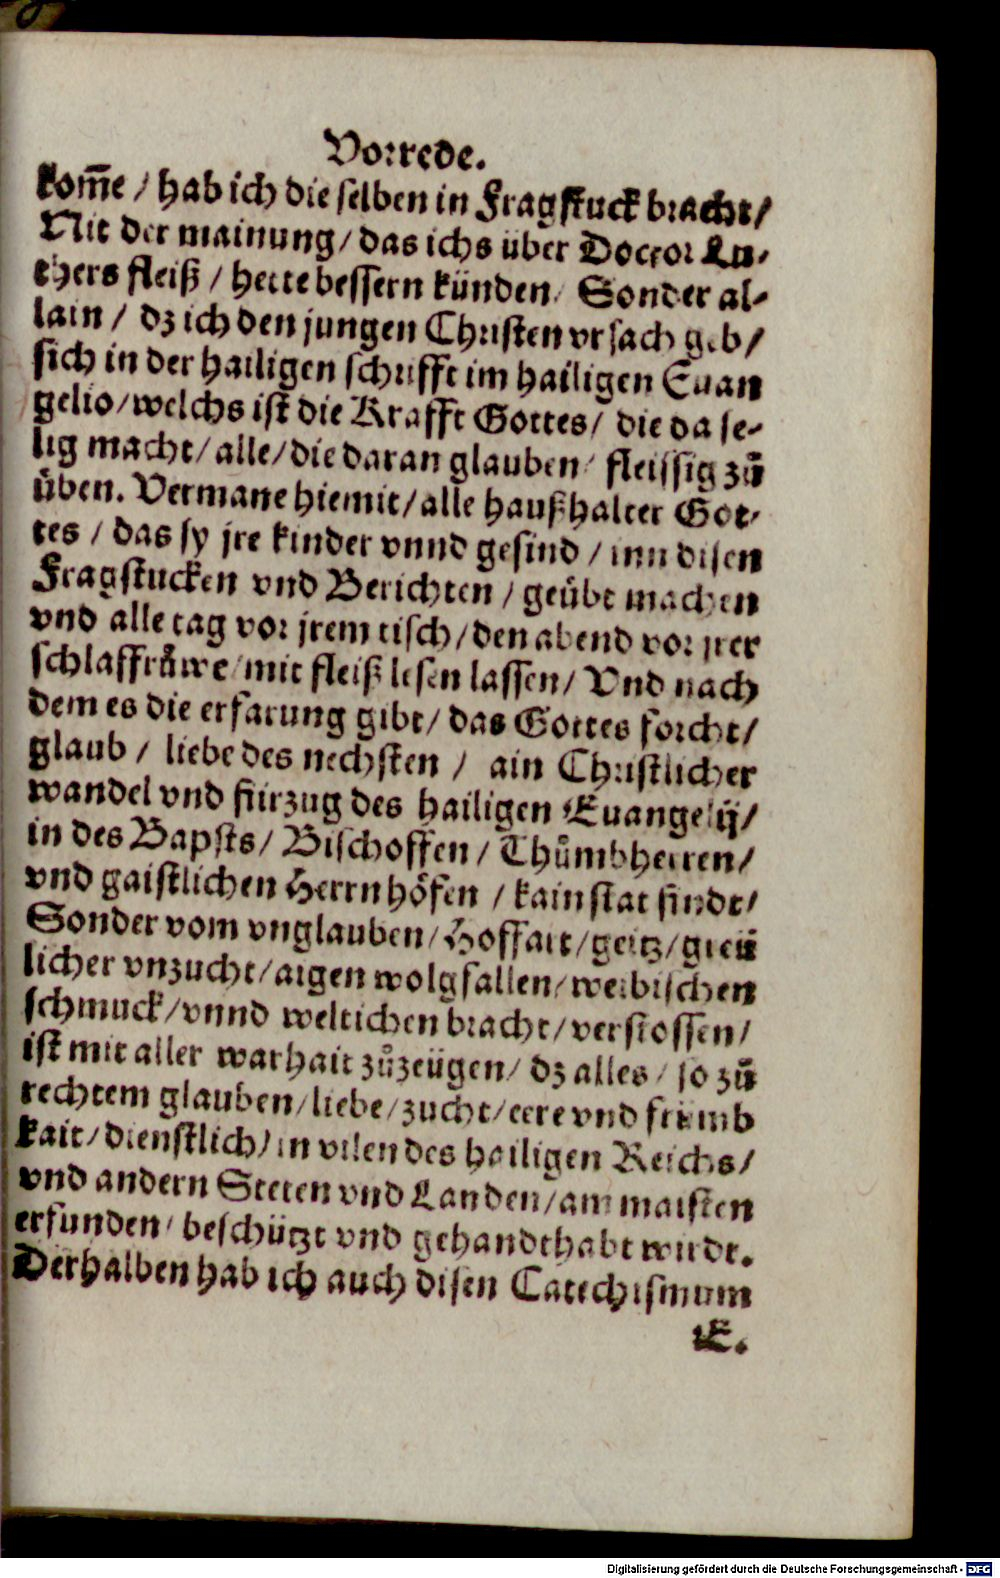 Vorrede.
kom̅e / hab ich die selben in Fragstuck bracht/
Nit der mainung/ das ichs über Doctor Lu-
thers fleiß / hette bessern künden/ Sonder al-
lain / dz ich den jungen Christen vrsach geb/
sich in der hailigen schrifft im hailigen Euan
gelio/welchs ist die Krafft Gottes/ die da se-
lig macht/ alle/ die daran glauben/ fleissig zů
üben. Vermane hiemit/ alle haußhalter Got-
tes / das sy jre kinder vnnd gesind / inn disen
Fragstucken vnd Berichten / geübt machen
vnd alle tag vor jrem tisch/ den abend vor jrer
schlaffrůwe/ mit fleiß lesen lassen/ Vnd nach
dem es die erfarung gibt/ das Gottes forcht/
glaub / liebe des nechsten / ain Christlicher
wandel vnd fürzug des hailigen Euangelij/
in des Bapsts/ Bischoffen / Thůmbherren/
vnd gaistlichen Herrn höfen / kain stat findt/
Sonder vom vnglauben/ Hoffart/ geitz/ greü
licher vnzucht/ aigen wolgfallen/ weibischen
schmuck/ vnnd weltichen bracht/ verstossen/
ist mit aller warhait zůzeügen/ dz alles / so zů
rechtem glauben/ liebe/ zucht/ eere vnd frümb
kait/ dienstlich/ in vilen des hailigen Reichs/
vnd andern Steten vnd Landen/ am maisten
erfunden/ beschützt vnd gehandthabt wirdt.
Derhalben hab ich auch disen Catechismum
E.
Digitalisierung gefördert durch die Deutsche Forschungsgemeinschaft - DFG